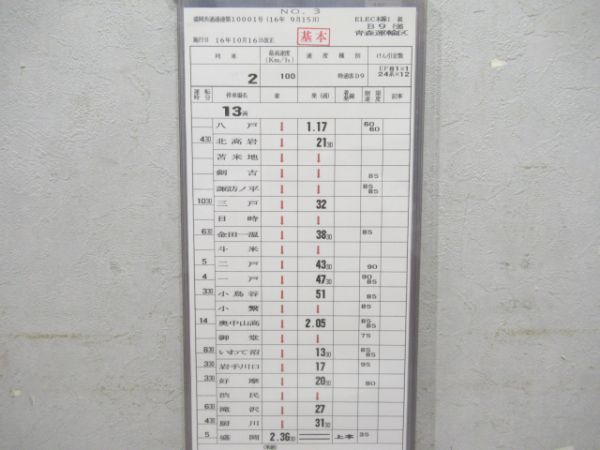 NO. 3
盛岡共通運達第10001号 (16年 9月15日)
ELEC本線1 表
B9運
施行日 16年10月16日改正
基本
青森運輸区
列車 最高速度(Km/h) 速度種別 けん引定数
2 100 特通客D9 EF81×1
24系×12
運転時分 停車場名 着 発(通) 着発線 制限速度 記事
13両
八戸 ↓ 1.17 60 60
4 30 北高岩 ↓ 21 30
苫米地 ↓ ↓
剣吉 ↓ ↓ 85
諏訪ノ平 ↓ ↓ 85 85
10 30 三戸 ↓ 32
目時 ↓ ↓
6 30 金田一温 ↓ 38 30 85
斗米 ↓ ↓
5 二戸 ↓ 43 30 90
4 一戸 ↓ 47 30 90 85
3 30 小鳥谷 ↓ 51 85
小繋 ↓ ↓ 85
14 奥中山高 ↓ 2.05 85 85
御堂 ↓ ↓ 75
8 30 いわて沼 ↓ 13 30 85 85
3 30 岩手川口 ↓ 17 95
3 30 好摩 ↓ 20 30 80
渋民 ↓ ↓
6 30 滝沢 ↓ 27
4 30 厨川 ↓ 31 30
5 盛岡 2.36 30 上本 35